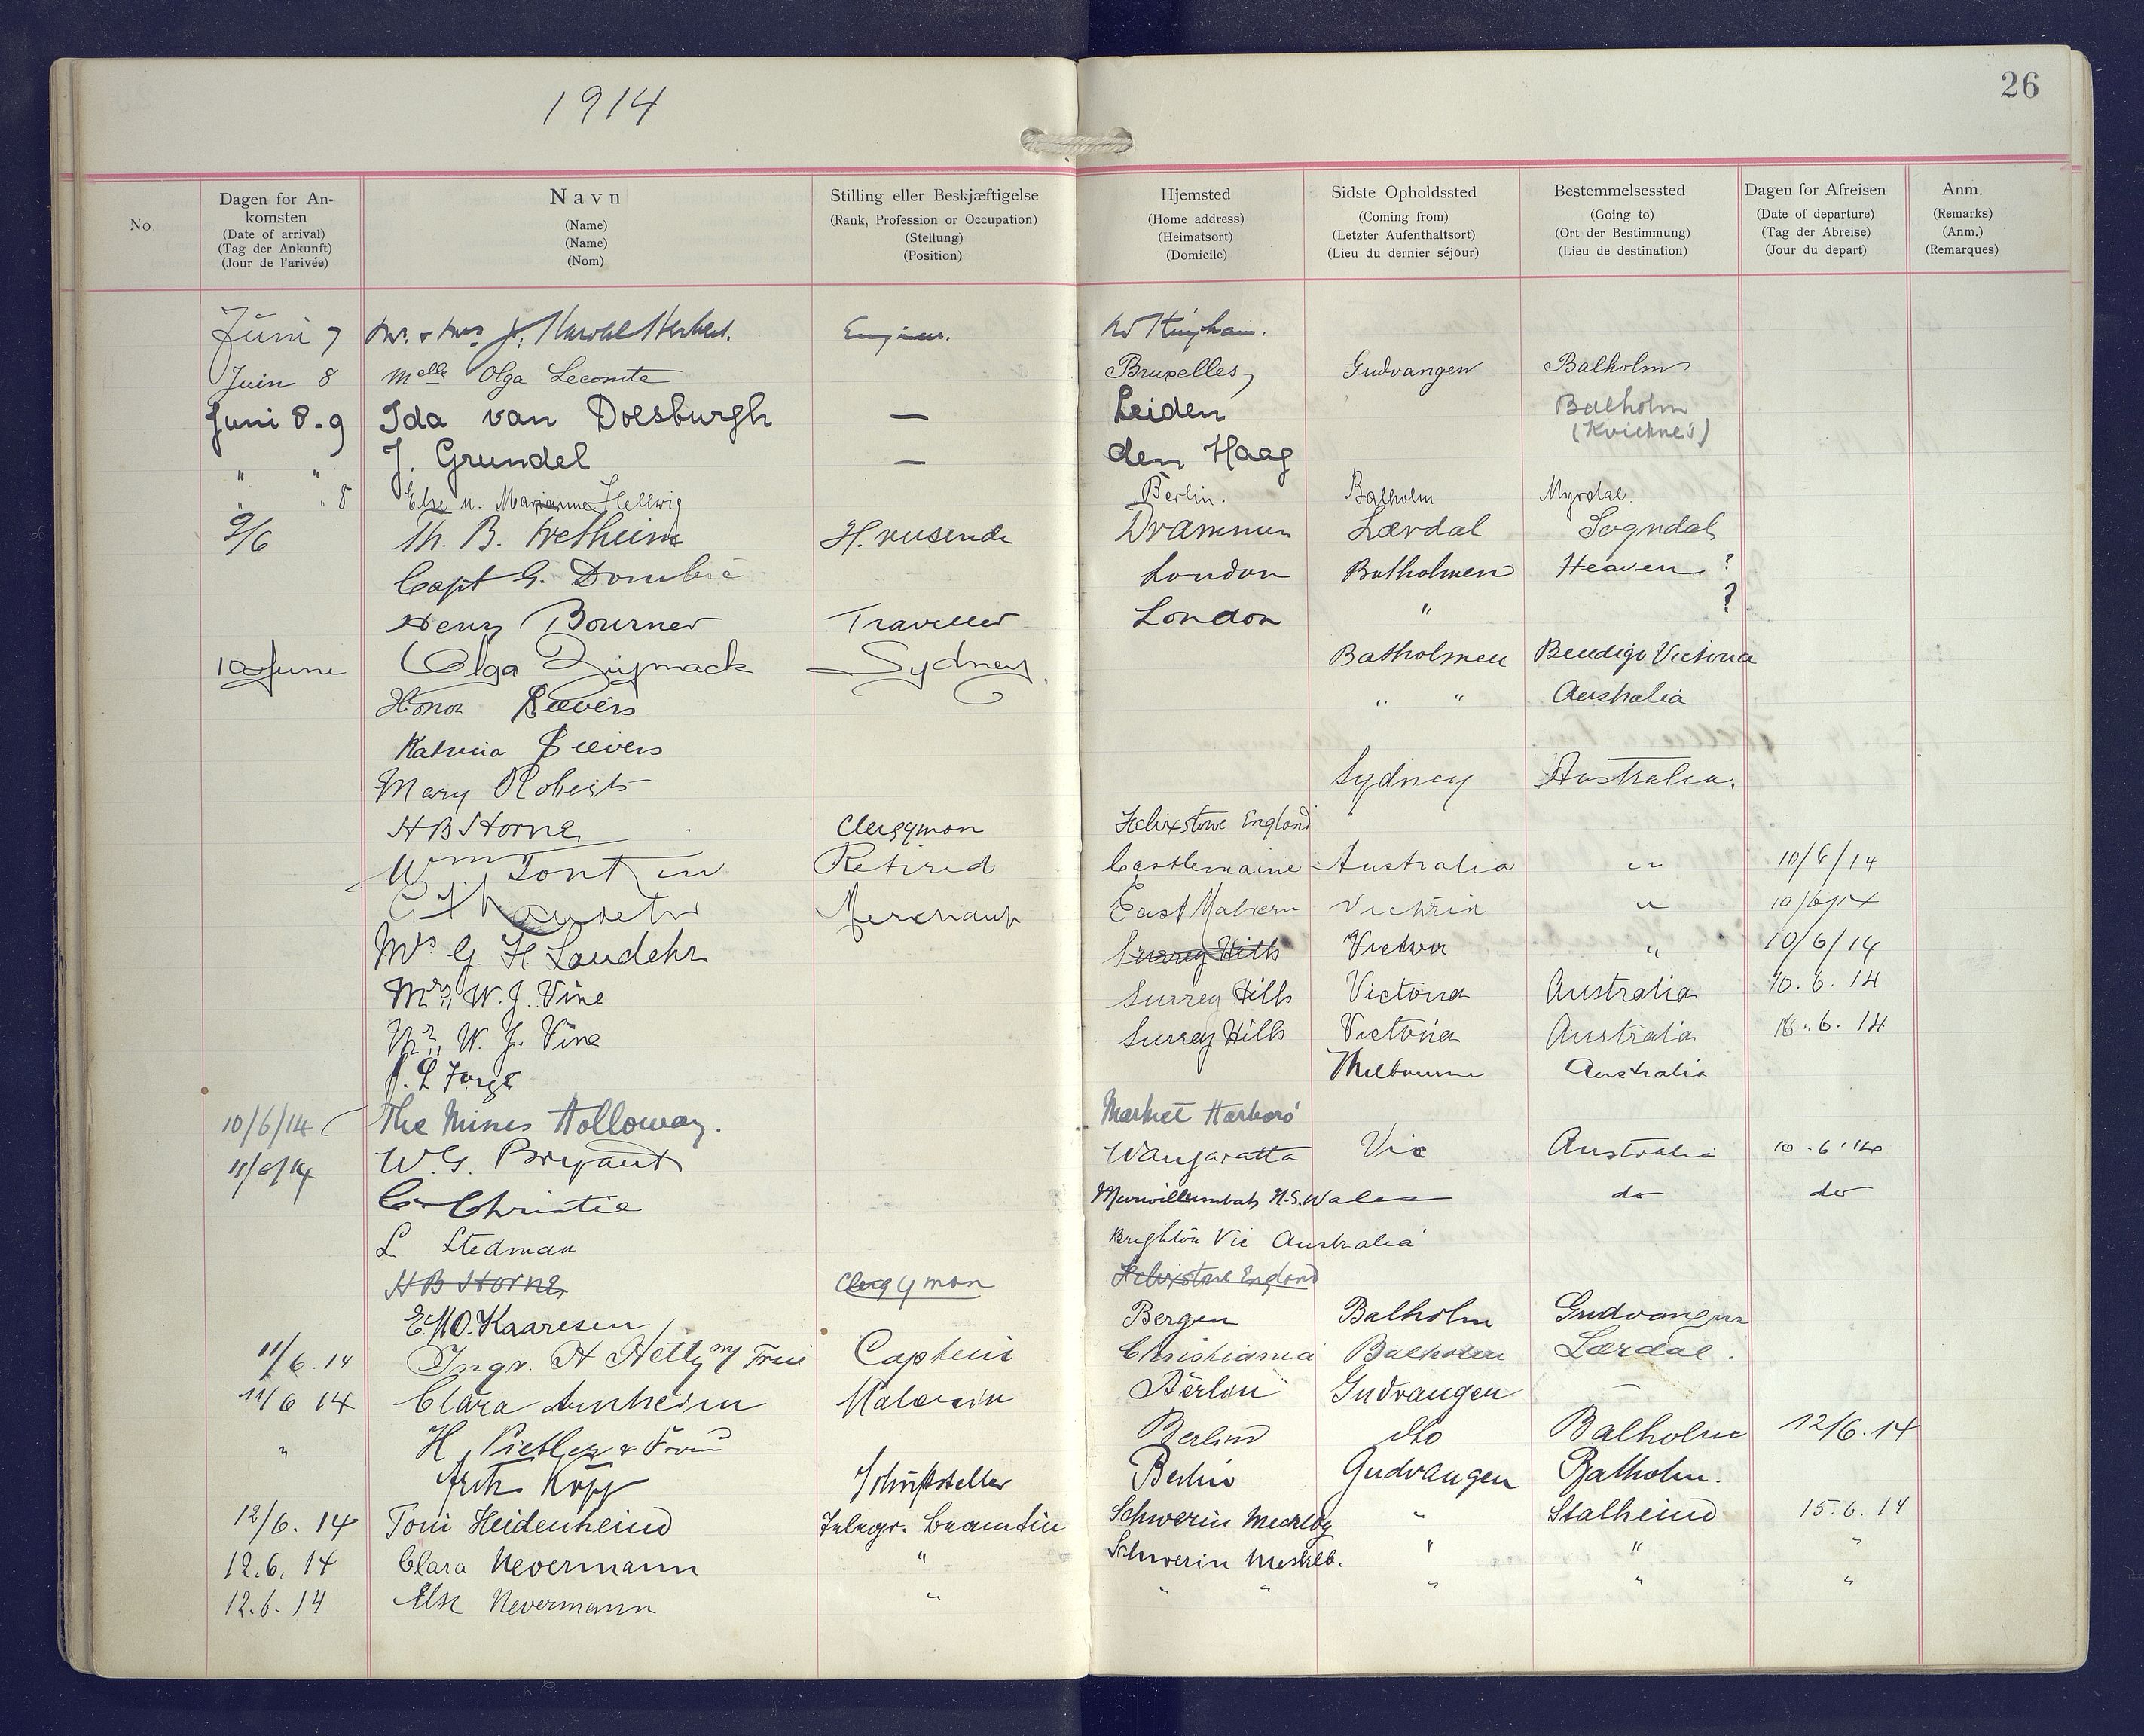 1914
26
No.
Dagen for Ankomsten (Date of arrival) (Tag der Ankunft) (Jour de l'arivée)
Navn (Name) (Name) (Nom)
Stilling eller Beskjæftigelse (Rank, Profession or Occupation) (Stellung) (Position)
Hjemsted (Home address) (Heimatsort) (Domicile)
Sidste Opholdssted (Coming from) (Letzter Aufenthaltsort) (Lieu du dernier séjour)
Bestemmelsessted (Going to) (Ort der Bestimmung) (Lieu de destination)
Dagen for Afreisen (Date of departure) (Tag der Abreise) (Jour du depart)
Anm. (Remarks) (Anm.) (Remarques)
Juni 7 Mr. & Mrs J. Harold Engineer. Nottingham.
Juin 8 Melle Olga Lecomte Bruxelles, Gudvangen Balholm
Juni 8-9 Ida van Doesburgh — Leiden Balholm
(Kvickne's)
" " J. Grundel — den Haag
" " 8 Else u. Marianne Hellwig Berlin. Balholm Myrdal.
9/6 Th. B. Fretheim H. reisende Drammen Lærdal Sogndal
Capt G. London Balholmen Heaven ?
Henry Bourner Traveller London " ?
10 June Olga Sydney Balholmen Bendigo Victoria
Honor Seevers " " Australia
Katrina Seevers
Mary Roberts Sydney Australia.
H B Horne Clergyman Felixstowe England
Wm Retired Castlemaine Australia " 10/6/14
G H Merchant East Malvern Victoria " 10/6/14
Mrs G. H. Landehr Surrey Hills Victoria " 10/6/14
Mrs, W. J. Vine Surrey Hills Victoria Australia 10. 6. 14
Mr, W. J. Vine Surrey Hills Victoria Australia 10. 6. 14
Melbourne Australia
10/6/14 The Misses Holloway. Market Harboro'
11/6/14 W.G. Bryant Wangaratta Vic Australia 10.6.14
C Christie Murwillumbah N.S. Wales do do
L Stedman Brighton Vic Australia
H B Horne Clergyman Felixstowe England
E. M. O. Kaaresen Bergen Balholm Gudvangen
11/6.14 Ingv. H m/ Frue Captein Christiania Balholm Lærdal.
11/6 14 Clara Arnheim Malerin Berlin Gudvangen —
" H. & Frau Berlin dto Balholm 12/6.14
Fritz Kopp Schriftsteller Berlin Gudvangen Balholm.
12/6. 14 Toni Heidenheim Telegr. Beamtin Schwerin Mecklbg " Stalheim 15.6.14
12.6. 14 Clara Nevermann " Schwerin Mecklb. " " "
12.6. 14 Else Nevermann " " " " " "